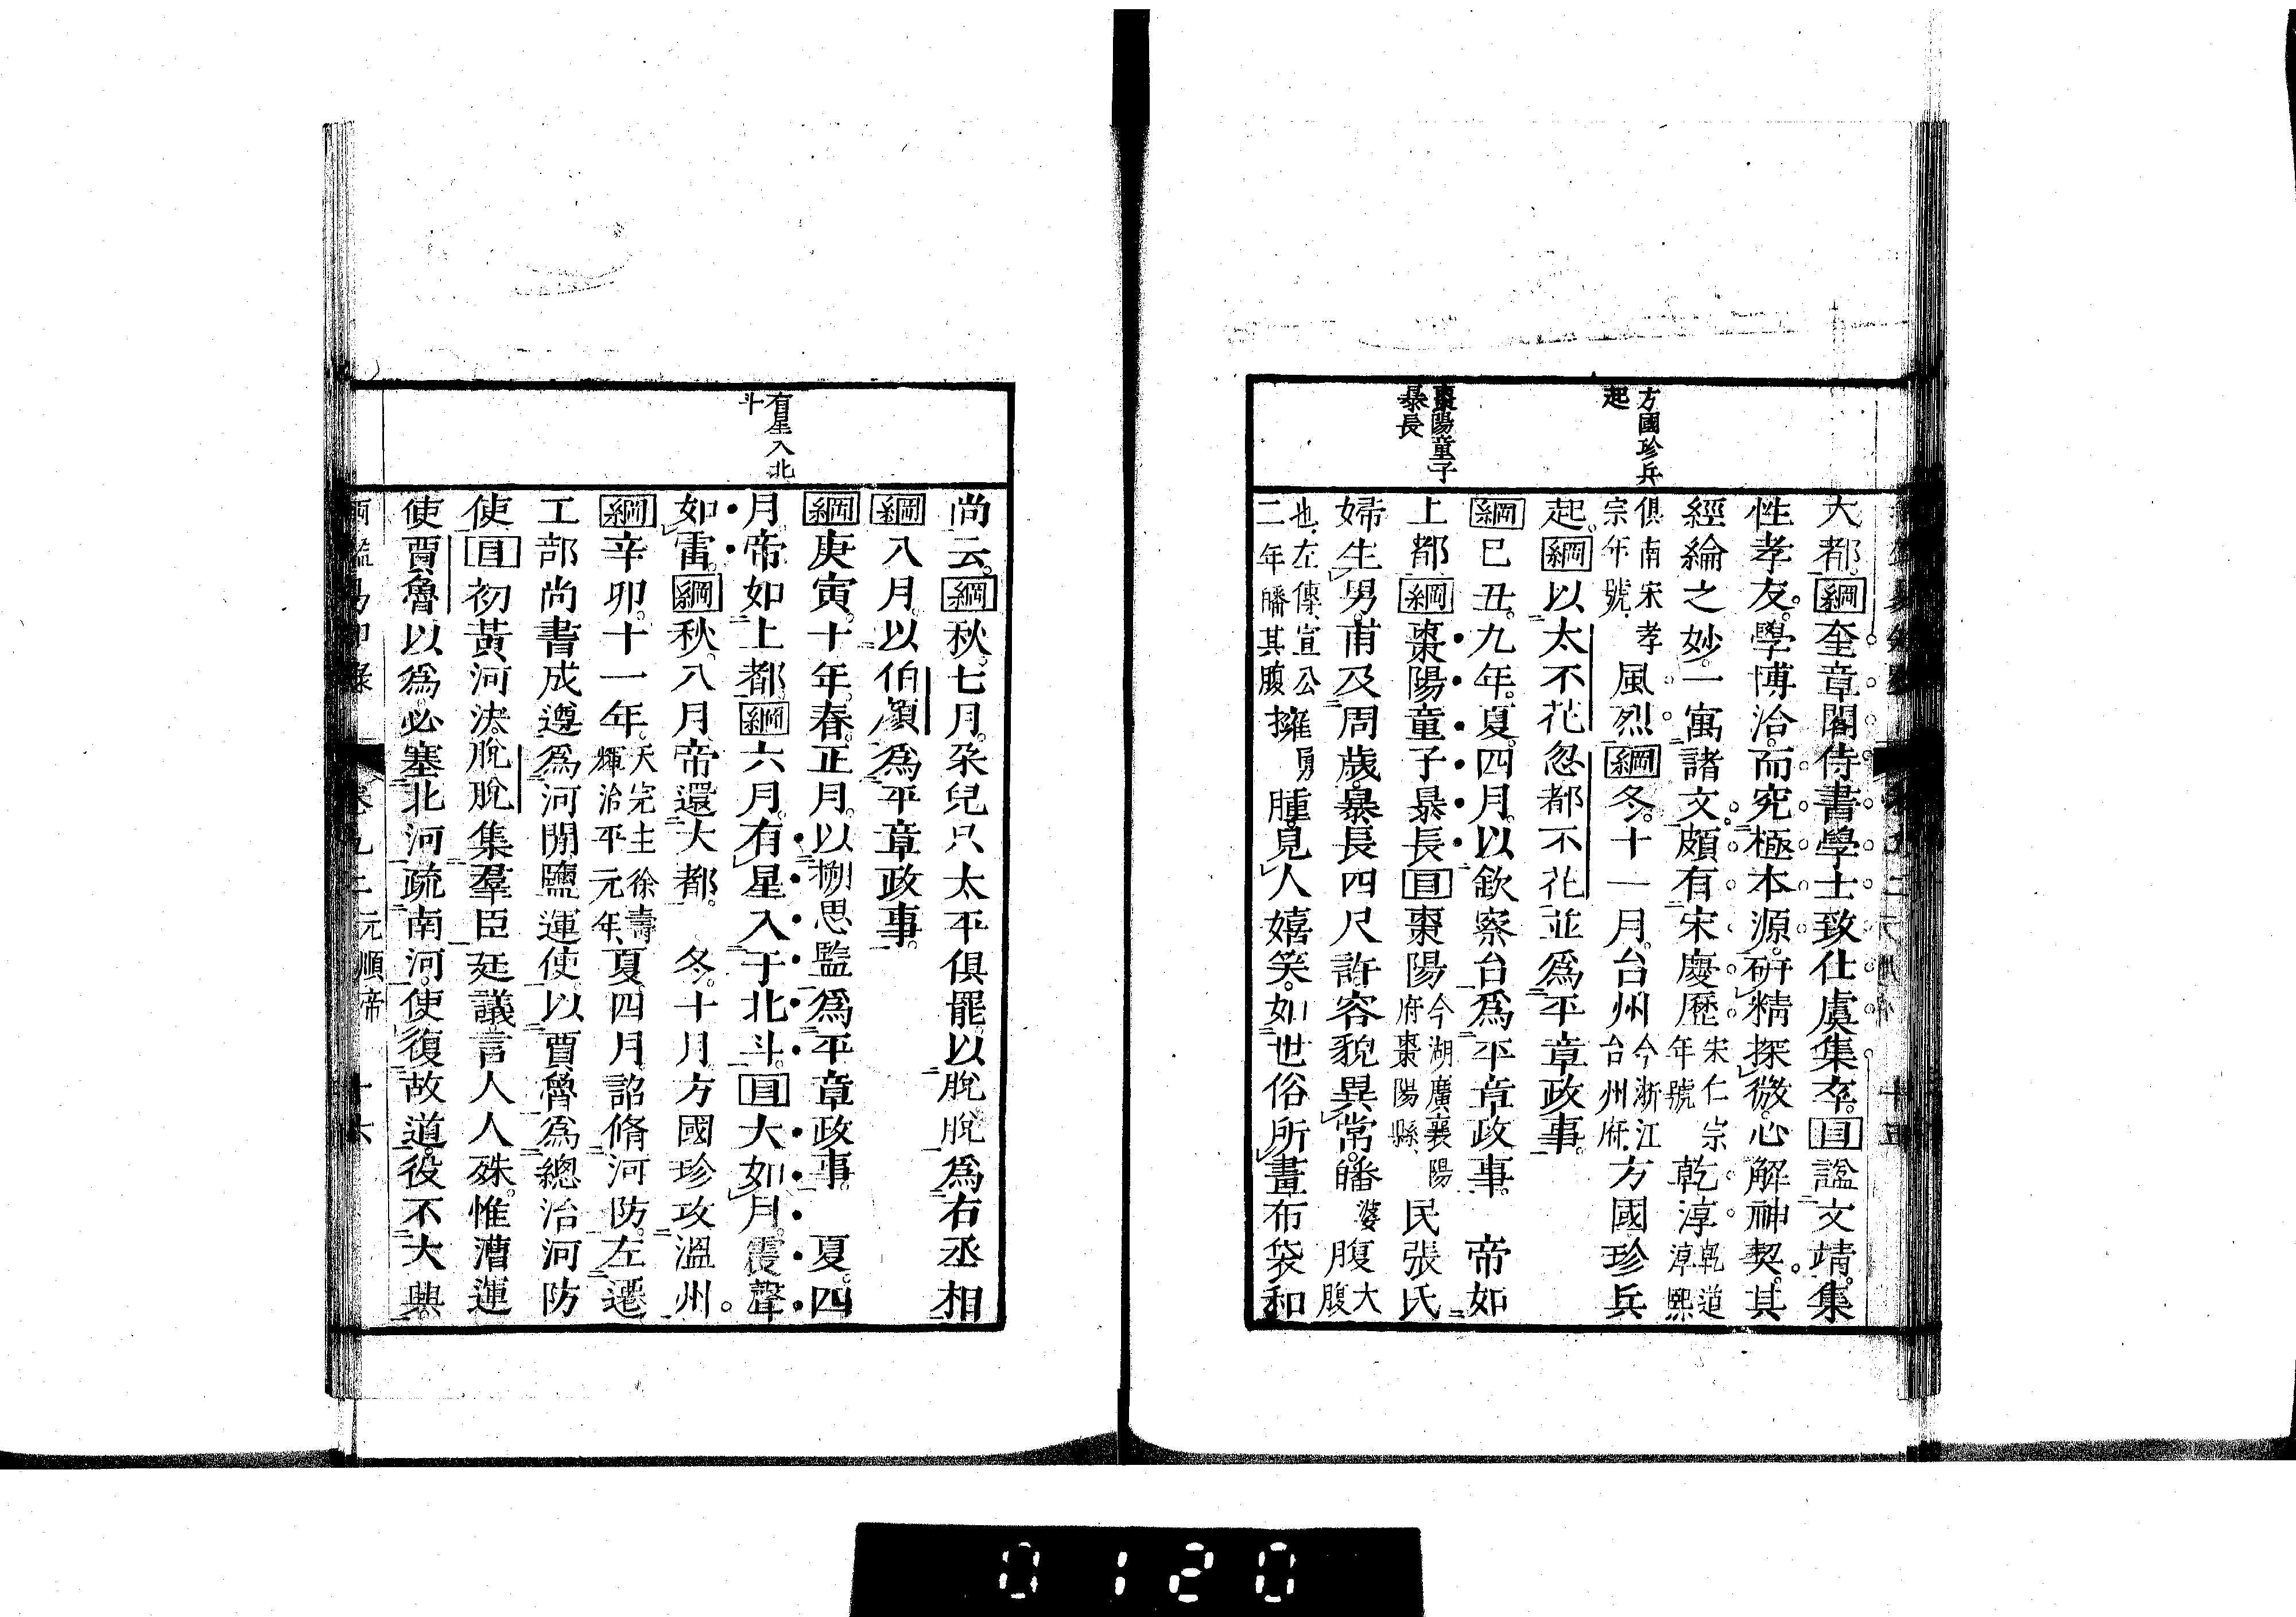 方國珍兵
起
棗陽童子
暴長
大都。綱奎章閣侍書學士致仕虞集卒。目諡文靖。集
性孝友。學博洽。而究極本源。研精探微。心解神契。其
經綸之妙。一寓諸文。頗有宋慶歷宋仁宗年號乾淳乾道淳熙
俱南宋孝宗年號風烈。綱冬。十一月。台州今浙江台州府方國珍兵
起。綱以太不花忽都不花並爲平章政事。
綱巳丑。九年。夏。四月。以欽察台爲平章政事。 帝如
上都。綱棗陽童子暴長。目棗陽今湖廣襄陽府棗陽縣民張氏
婦生男。甫及周歲。暴長四尺許。容貌異常。皤婆腹大腹
也、左傳宣公二年皤其腹擁勇腫。見人嬉笑。如世俗所畫布袋和
有星入北
斗
尚云。綱秋。七月。朶兒只太平俱罷。以脫脫爲右丞相。
綱八月。以伯顏爲平章政事。
綱庚寅。十年。春。正月。以搠思監爲平章政事。 夏。四
月。帝如上都。綱六月。有星入于北斗。目大如月。震聲
如雷。綱秋。八月。帝還大都。 冬。十月。方國珍攻溫州。
綱辛卯。十一年。天完主徐壽輝治平元年、夏。四月。詔脩河防。左遷
工部尚書成遵爲河間鹽運使。以賈魯爲總治河防
使。目初黃河決。脫脫集羣臣廷議。言人人殊。惟漕運
使賈魯以爲。必塞北河。疏南河。使復故道。役不大興
卷九二 元順帝 十六
0120